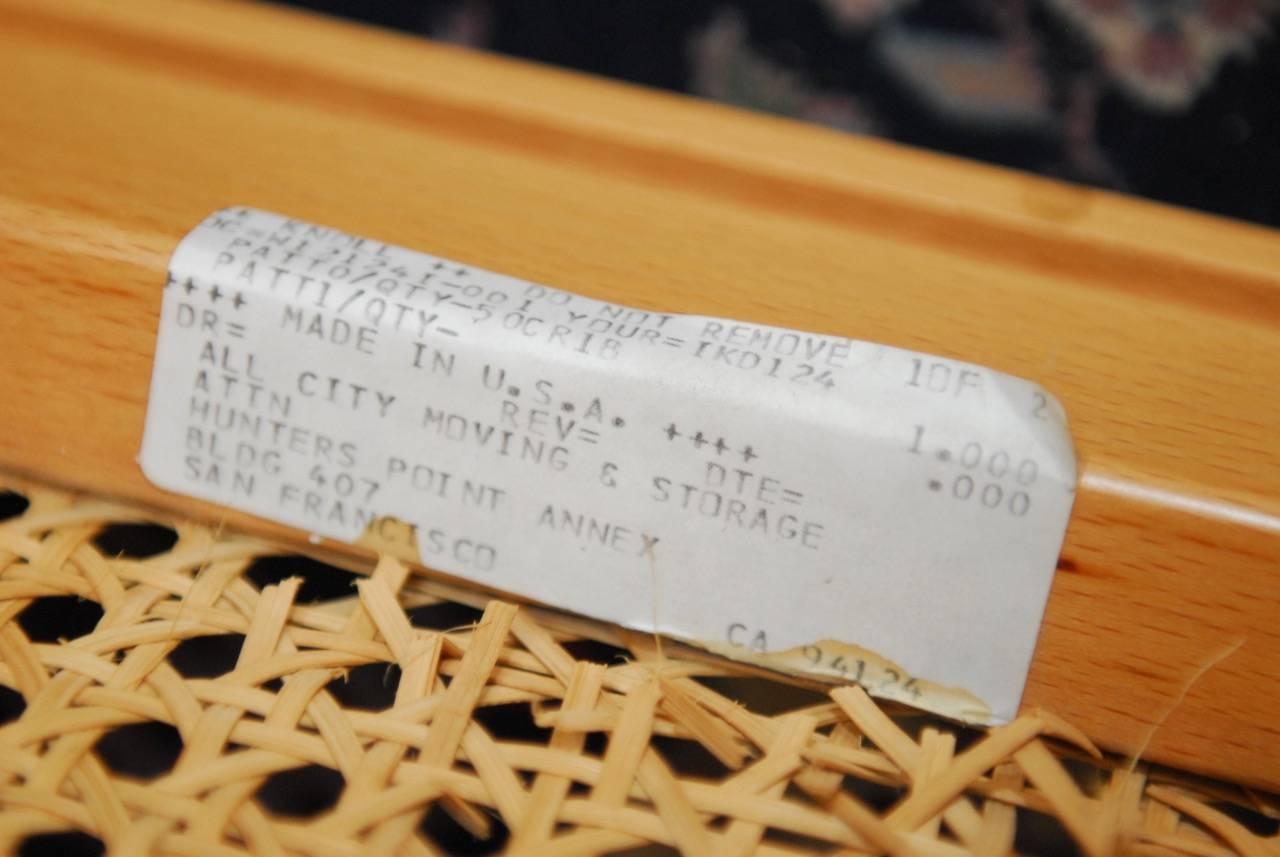 ++ KNOLL ++ DO NOT REMOVE 1OF 2
W121241-001 YOUR=IKD124
PATT0/QTY-50CR18 1.000
PATT1/QTY- .000
++++ MADE IN U.S.A. ++++
DR= REV= DTE=
ALL CITY MOVING & STORAGE
ATTN
HUNTERS POINT ANNEX
BLDG 407
SAN FRANCISCO
CA 94124